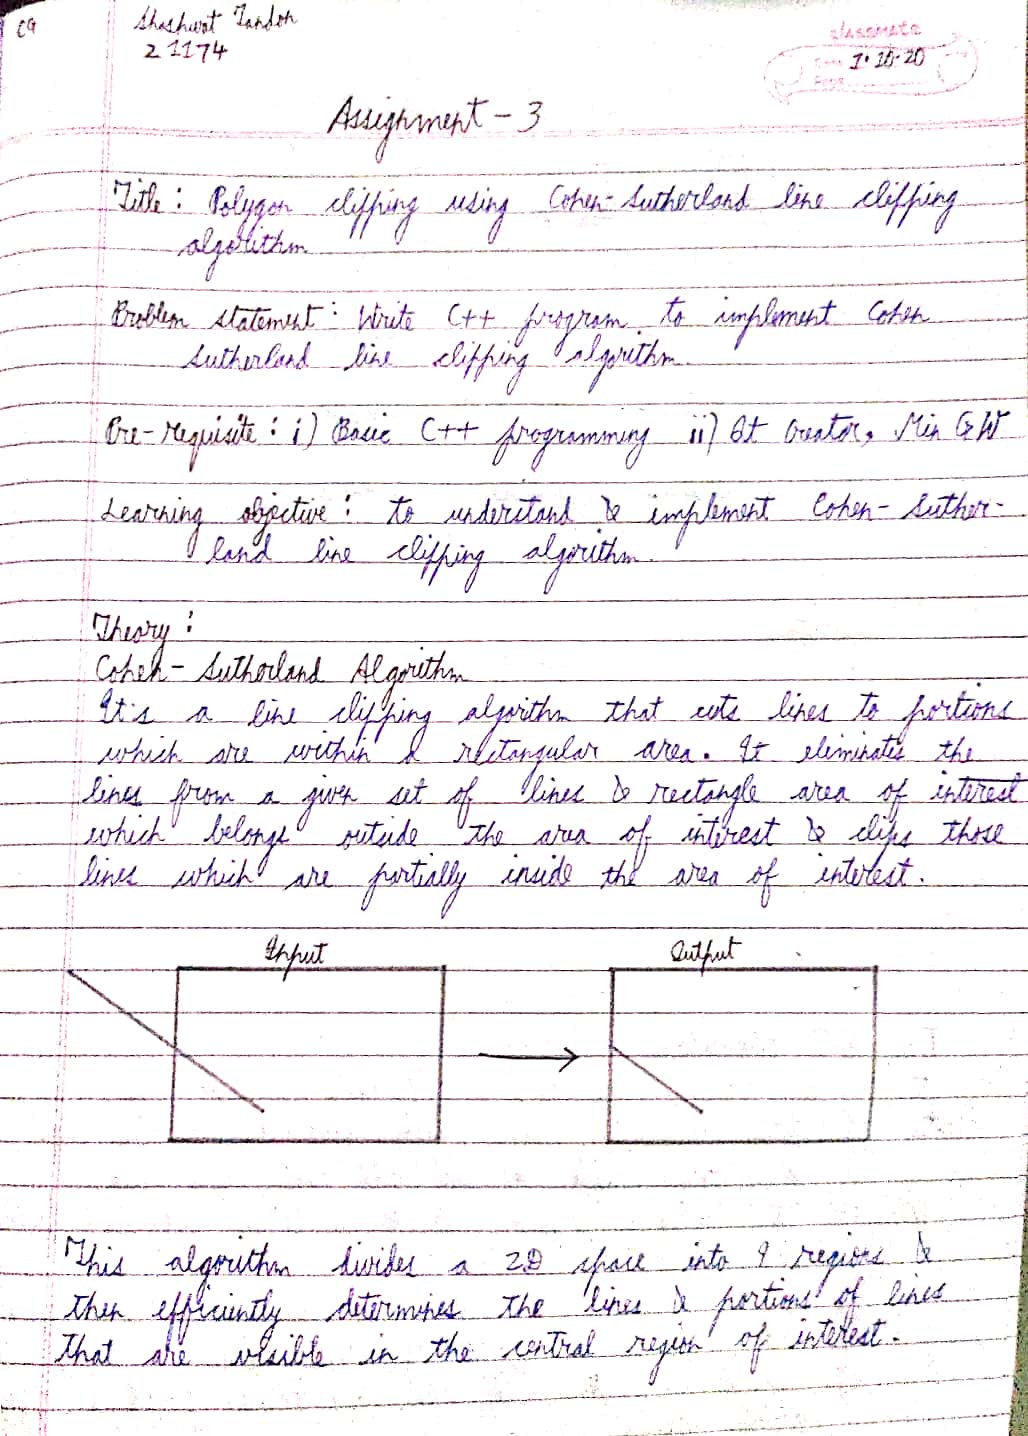 CG
Shashwat Tandon
21174
classmate
Date 7.10.20
Page
Assignment - 3
Title : Polygon clipping using Cohen-Sutherland line clipping
algorithm
Problem statement : Write C++ program to implement Cohen
Sutherland line clipping algorithm.
Pre-requisite : i) Basic C++ programming ii) Qt Creator, Min GW
Learning objective : to understand & implement Cohen-Suther-
land line clipping algorithm.
Theory :
Cohen-Sutherland Algorithm
It's a line clipping algorithm that cuts lines to portions
which are within a rectangular area. It eliminates the
lines from a given set of lines & rectangle area of interest
which belongs outside the area of interest & clips those
lines which are partially inside the area of interest.
Input
Output
This algorithm divides a 2D space into 9 regions &
then efficiently determines the lines & portions of lines
that are visible in the central region of interest.